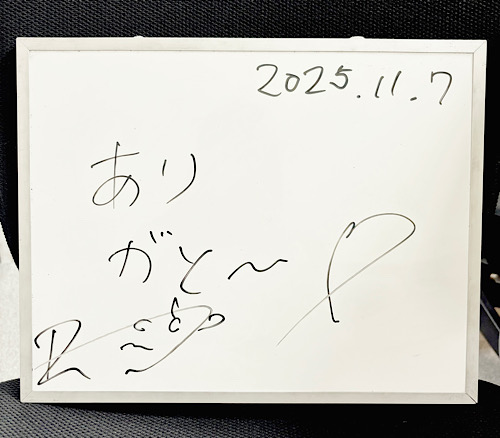 2025.11.7
あり
がと〜